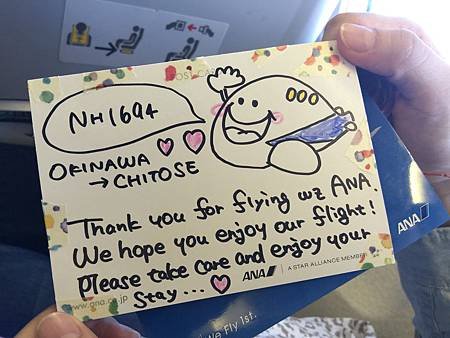 POST CARD
NH1694
OKINAWA
→ CHITOSE
Thank you for flying wz ANA.
We hope you enjoy our flight!
Please take care and enjoy your
stay...
ANA
A STAR ALLIANCE MEMBER
www.ana.co.jp
ANA
We Fly 1st.